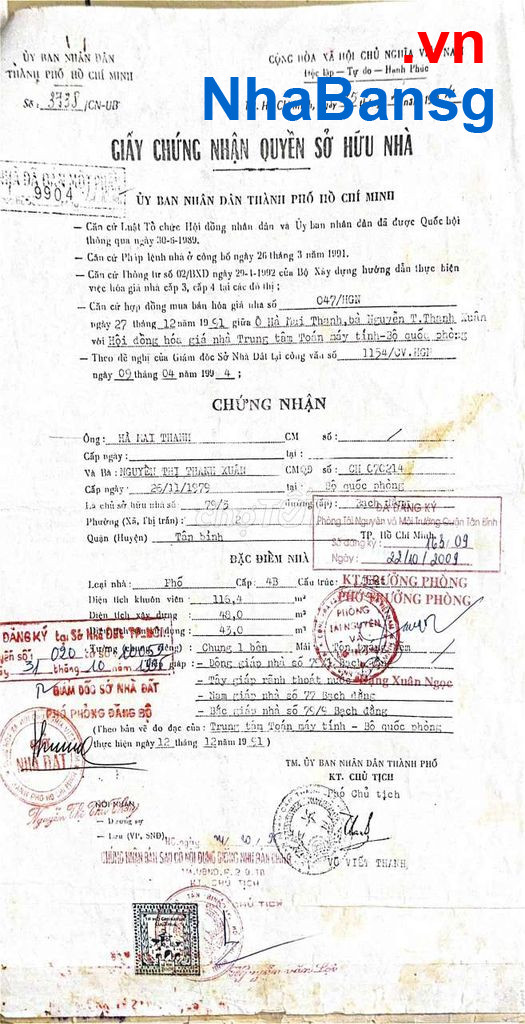 .vn
NhaBansg
ỦY BAN NHÂN DÂN
THÀNH PHỐ HỒ CHÍ MINH
Số: 3738/CN-UB
CỘNG HÒA XÃ HỘI CHỦ NGHĨA VIỆT NAM
Độc lập — Tự do — Hạnh Phúc
GIẤY CHỨNG NHẬN QUYỀN SỞ HỮU NHÀ
9904
ỦY BAN NHÂN DÂN THÀNH PHỐ HỒ CHÍ MINH
— Căn cứ Luật Tổ chức Hội đồng nhân dân và Ủy ban nhân dân đã được Quốc hội
thông qua ngày 30-6-1989.
— Căn cứ Pháp lệnh nhà ở công bố ngày 26 tháng 3 năm 1991.
— Căn cứ Thông tư số 02/BXD ngày 29-1-1992 của Bộ Xây dựng hướng dẫn thực hiện
việc hóa giá nhà cấp 3, cấp 4 tại các đô thị;
— Căn cứ hợp đồng mua bán hóa giá nhà số 047/HGN
ngày 27 tháng 12 năm 1991 giữa Ô Hà Mai Thanh, bà Nguyễn T.Thanh Xuân
với Hội đồng hóa giá nhà Trung tâm Toán máy tính-Bộ quốc phòng
— Theo đề nghị của Giám đốc Sở Nhà Đất tại công văn số 1154/CV.HGN
ngày 09 tháng 04 năm 1994;
CHỨNG NHẬN
Ông: HÀ MAI THANH CM số: /
Cấp ngày: tại:
Và Bà: NGUYỄN THỊ THANH XUÂN CMQĐ số: CN 070214
Cấp ngày: 26/11/1979 tại: Bộ quốc phòng
Là chủ sở hữu nhà số: 79/3 đường (ấp): Bạch đằng
Phường (Xã, Thị trấn): 2
Quận (Huyện) Tân bình TP. Hồ Chí Minh
ĐÃ ĐĂNG KÝ
Phòng Tài Nguyên và Môi Trường Quận Tân Bình
Số đăng ký: 163/09
Ngày: 22/10/2009
KT.TRƯỞNG PHÒNG
PHÓ TRƯỞNG PHÒNG
Đặng Xuân Ngọc
ĐẶC ĐIỂM NHÀ
Loại nhà: Phố Cấp: 4B Cấu trúc:
Diện tích khuôn viên: 116,4 m²
Diện tích xây dựng: 48,0 m²
43,0 m²
Chung 1 bên Mái
— Tây giáp rãnh thoát nước
— Nam giáp nhà số 77 Bạch đằng
— Bắc giáp nhà số 79/9 Bạch đằng
(Theo bản vẽ đo đạc của: Trung tâm Toán máy tính - Bộ quốc phòng
thực hiện ngày 12 tháng 12 năm 1991)
ĐĂNG KÝ tại Sở NHÀ ĐẤT TP.HCM
31 tháng 10 năm 1996
GIÁM ĐỐC SỞ NHÀ ĐẤT
PHÓ PHÒNG ĐĂNG BỘ
NHÀ ĐẤT
TM. ỦY BAN NHÂN DÂN THÀNH PHỐ
KT. CHỦ TỊCH
Phó Chủ tịch
VÕ VIẾT THANH
NƠI NHẬN
— Đương sự
— Lưu (VP, SNĐ)
CHỨNG NHẬN BẢN SAO CÓ NỘI DUNG GIỐNG NHƯ BẢN CHÍNH
KT. CHỦ TỊCH
CHỦ TỊCH